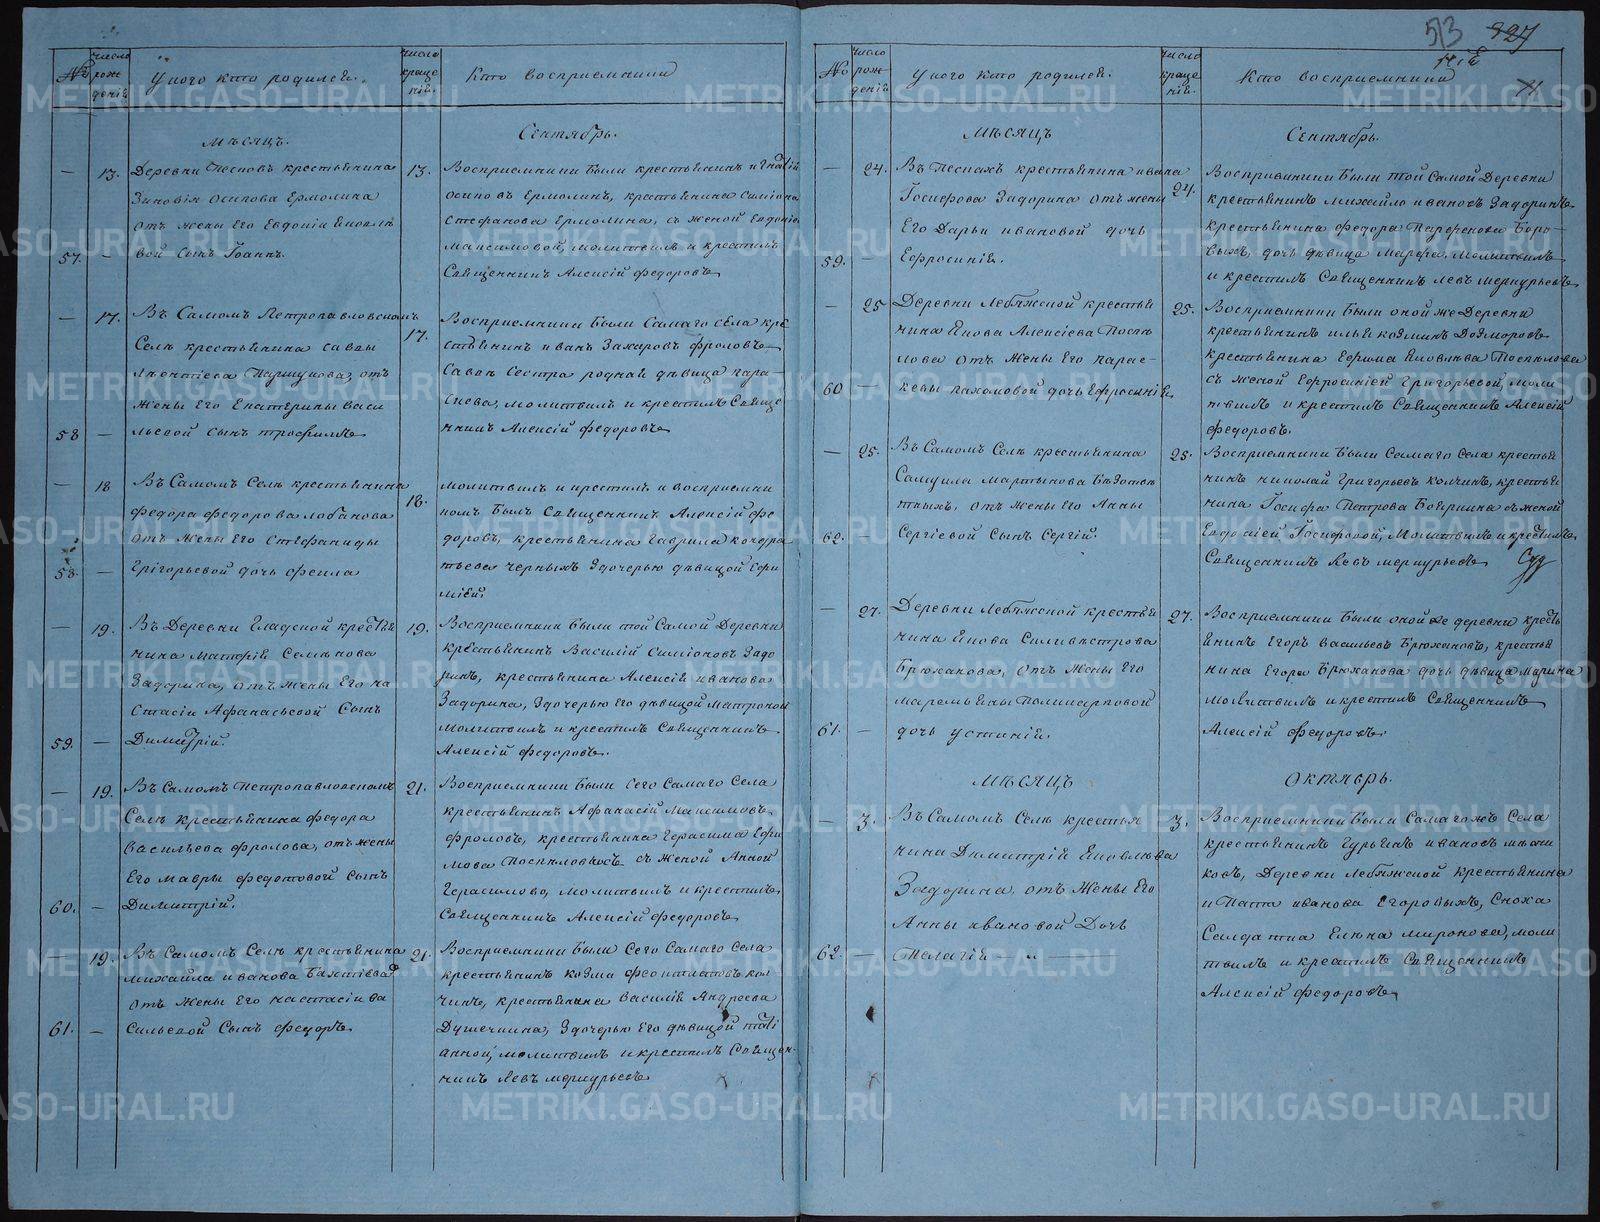 513 827
№
число рож дений
У кого кто родился.
число креще ний.
Кто восприемники
Мѣсяцъ.
Сентябрь.
— 13.
Деревни Песковъ крестьянина
Зиновія Осипова Ермолина
отъ жены его Евдокіи Яковле
57. —
вой сынъ Іоаннъ.
13.
Восприемники были крестьянинъ Игнатій
Осиповъ Ермолинъ, крестьянина Симіона
Стефанова Ермолина, съ женой Евдокіе
Максимовой, молитвилъ и крестилъ
Священникъ Алексій Федоровъ
— 17.
Въ Самомъ Петропавловскомъ
Селѣ крестьянина Саввы
отъ
жены его Екатерины Васи
58 —
льевой сынъ Трофимъ
17.
Восприемники были Самаго села кре
стьянинъ Иванъ Захаровъ Фроловъ
Савы сестра родная дѣвица Пара
скева, молитвилъ и крестилъ Свяще
нникъ Алексій Федоровъ
— 18
Въ Самомъ Селѣ крестьянина
Федора Федорова Лобанова
отъ жены его Стефаниды
58 —
Григорьевой дочь Фекла
18.
Молитвилъ и крестилъ и восприемни
комъ былъ Священникъ Алексій Фе
доровъ, крестьянина Гаврила Кондра
тьева Черныхъ Здочерью дѣвицой Ефи
міей
— 19.
Въ Деревни Гладской крестья
нина Матфея Семенова
Задорина, отъ жены его На
стасіи Афанасьевой сынъ
59. —
Димитрій.
19.
Восприемники были той самой Деревни
крестьянинъ Василій Симіоновъ Задо
ринъ, крестьянина Алексія Иванова
Задорина, Здочерью его дѣвицой Матроной
молитвилъ и крестилъ Священникъ
Алексій Федоровъ.
— 19.
Въ Самомъ Петропавловскомъ
Селѣ крестьянина Федора
Васильева Фролова, отъ жены
его Мавры Федотовой сынъ
60. —
Димитрій.
21.
Восприемники были Сего Самаго Села
крестьянинъ Афанасій Максимовъ
Фроловъ, крестьянина Герасима Ефи
мова съ женой Анной
Герасимово, молитвилъ и крестилъ
Священникъ Алексій Федоровъ
— 19.
Въ Самомъ Селѣ крестьянина
Михайла Иванова
отъ жены его Настасіи Ва
61. —
сильевой сынъ Федоръ
21.
Восприемники были Сего Самаго Села
крестьянинъ Козма Кол
чинъ, крестьянина Василія Андреева
Душечкина, Здочерью его дѣвицой Тат
анной, молитвилъ и крестилъ Священ-
никъ Левъ Меркурьевъ
№
число рож дений
У кого кто родился.
число креще ний.
Кто восприемники
Мѣсяцъ
Сентябрь.
— 24.
Въ Пескахъ крестьянина Ивана
Іосифова Задорина отъ жены
Его Дарьи Ивановой дочь
59. —
Ефросинія.
24.
Восприемники были той Самой Деревни
крестьянинъ Михайло Ивановъ Задоринъ
крестьянина Федора Парфенова Боро-
выхъ, дочь дѣвица Марфа, молитвилъ
и крестилъ Священникъ Левъ Меркурьевъ
— 25
Деревни Лебяжской крестья
нина Якова Алексіева Поспе
лова отъ жены его Парас-
60 —
кевы Пахомовой дочь Ефросинія
25.
Восприемники были оной же Деревни
крестьянинъ Илья Козминъ
крестьянина Ефима Яковлева Поспелова
съ женой Ефросиніей Григорьевой, моли
твилъ и крестилъ Священникъ Алексій
Федоровъ.
— 25.
Въ Самомъ Селѣ крестьянина
Самуила Мартынова
отъ жены его Анны
62. —
Сергіевой сынъ Сергій.
25.
Восприемники были Самаго Села крестья
нинъ Николай Григорьевъ Колчинъ, крестья
нина Іосифа Петрова съ женой
Евдокіей Іосифовой, молитвилъ и крестилъ
Священникъ Левъ Меркурьевъ
— 27.
Деревни Лебяжской крестья
нина Якова Силивестрова
Брюханова, отъ жены его
Маремьяны Поликарповой
61. —
дочь Устинія.
27.
Восприемники были оной же деревни кресть
янинъ Егоръ Васильевъ Брюхановъ, крестья
нина Егора Брюханова дочь дѣвица Марина
молитвилъ и крестилъ Священникъ
Алексій Федоровъ.
Мѣсяцъ
Октябрь.
— 3.
Въ Самомъ Селѣ крестья
нина Димитрій Яковлева
Задорина отъ жены его
Анны Ивановой дочь
62. —
Пелагій
3.
Восприемники были Самагожъ Села
крестьянинъ Гурьянъ Ивановъ
ковъ, Деревни Лебяжской крестьянина
Ипата Иванова Егоровыхъ, сноха
Солдатка Елена Миронова, моли
твилъ и крестилъ Священникъ
Алексій Федоровъ
METRIKI.GASO-URAL.RU